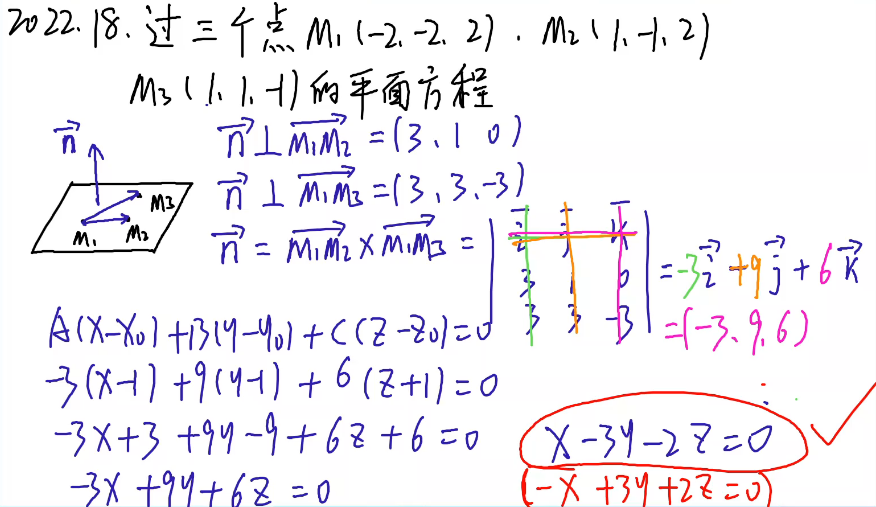 2022.18.过三个点M₁(-2,-2,2).M₂(1,-1,2)
M₃(1,1,-1)的平面方程
n⃗⊥M₁M₂=(3、1 0)
n⃗⊥M₁M₃=(3,3,-3)
n⃗ M₁ M₂ M₃
n⃗=M₁M₂×M₁M₃=| i j k |
| 3 1 0 |
| 3 3 -3 |
=-3i⃗+9j⃗+6k⃗
=(-3、9、6)
A(x-x₀)+B(y-y₀)+C(z-z₀)=0
-3(x-1)+9(y-1)+6(z+1)=0
-3x+3+9y-9+6z+6=0
x-3y-2z=0
-3x+9y+6z=0
(-x+3y+2z=0)